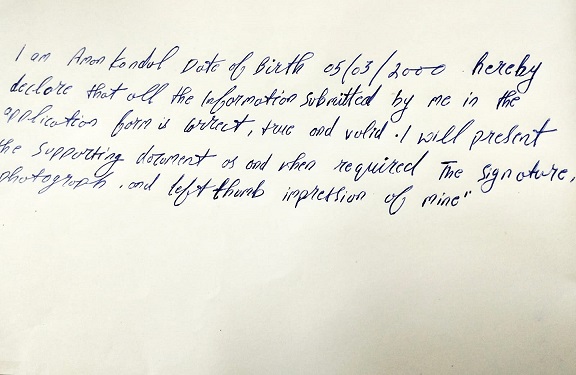 I am Aman Kandal Date of Birth 05/03/2000 hereby
declare that all the Information submitted by me in the
application form is correct, true and valid. I will present
the supporting document as and when required The signature,
photograph, and left thumb impression of mine"